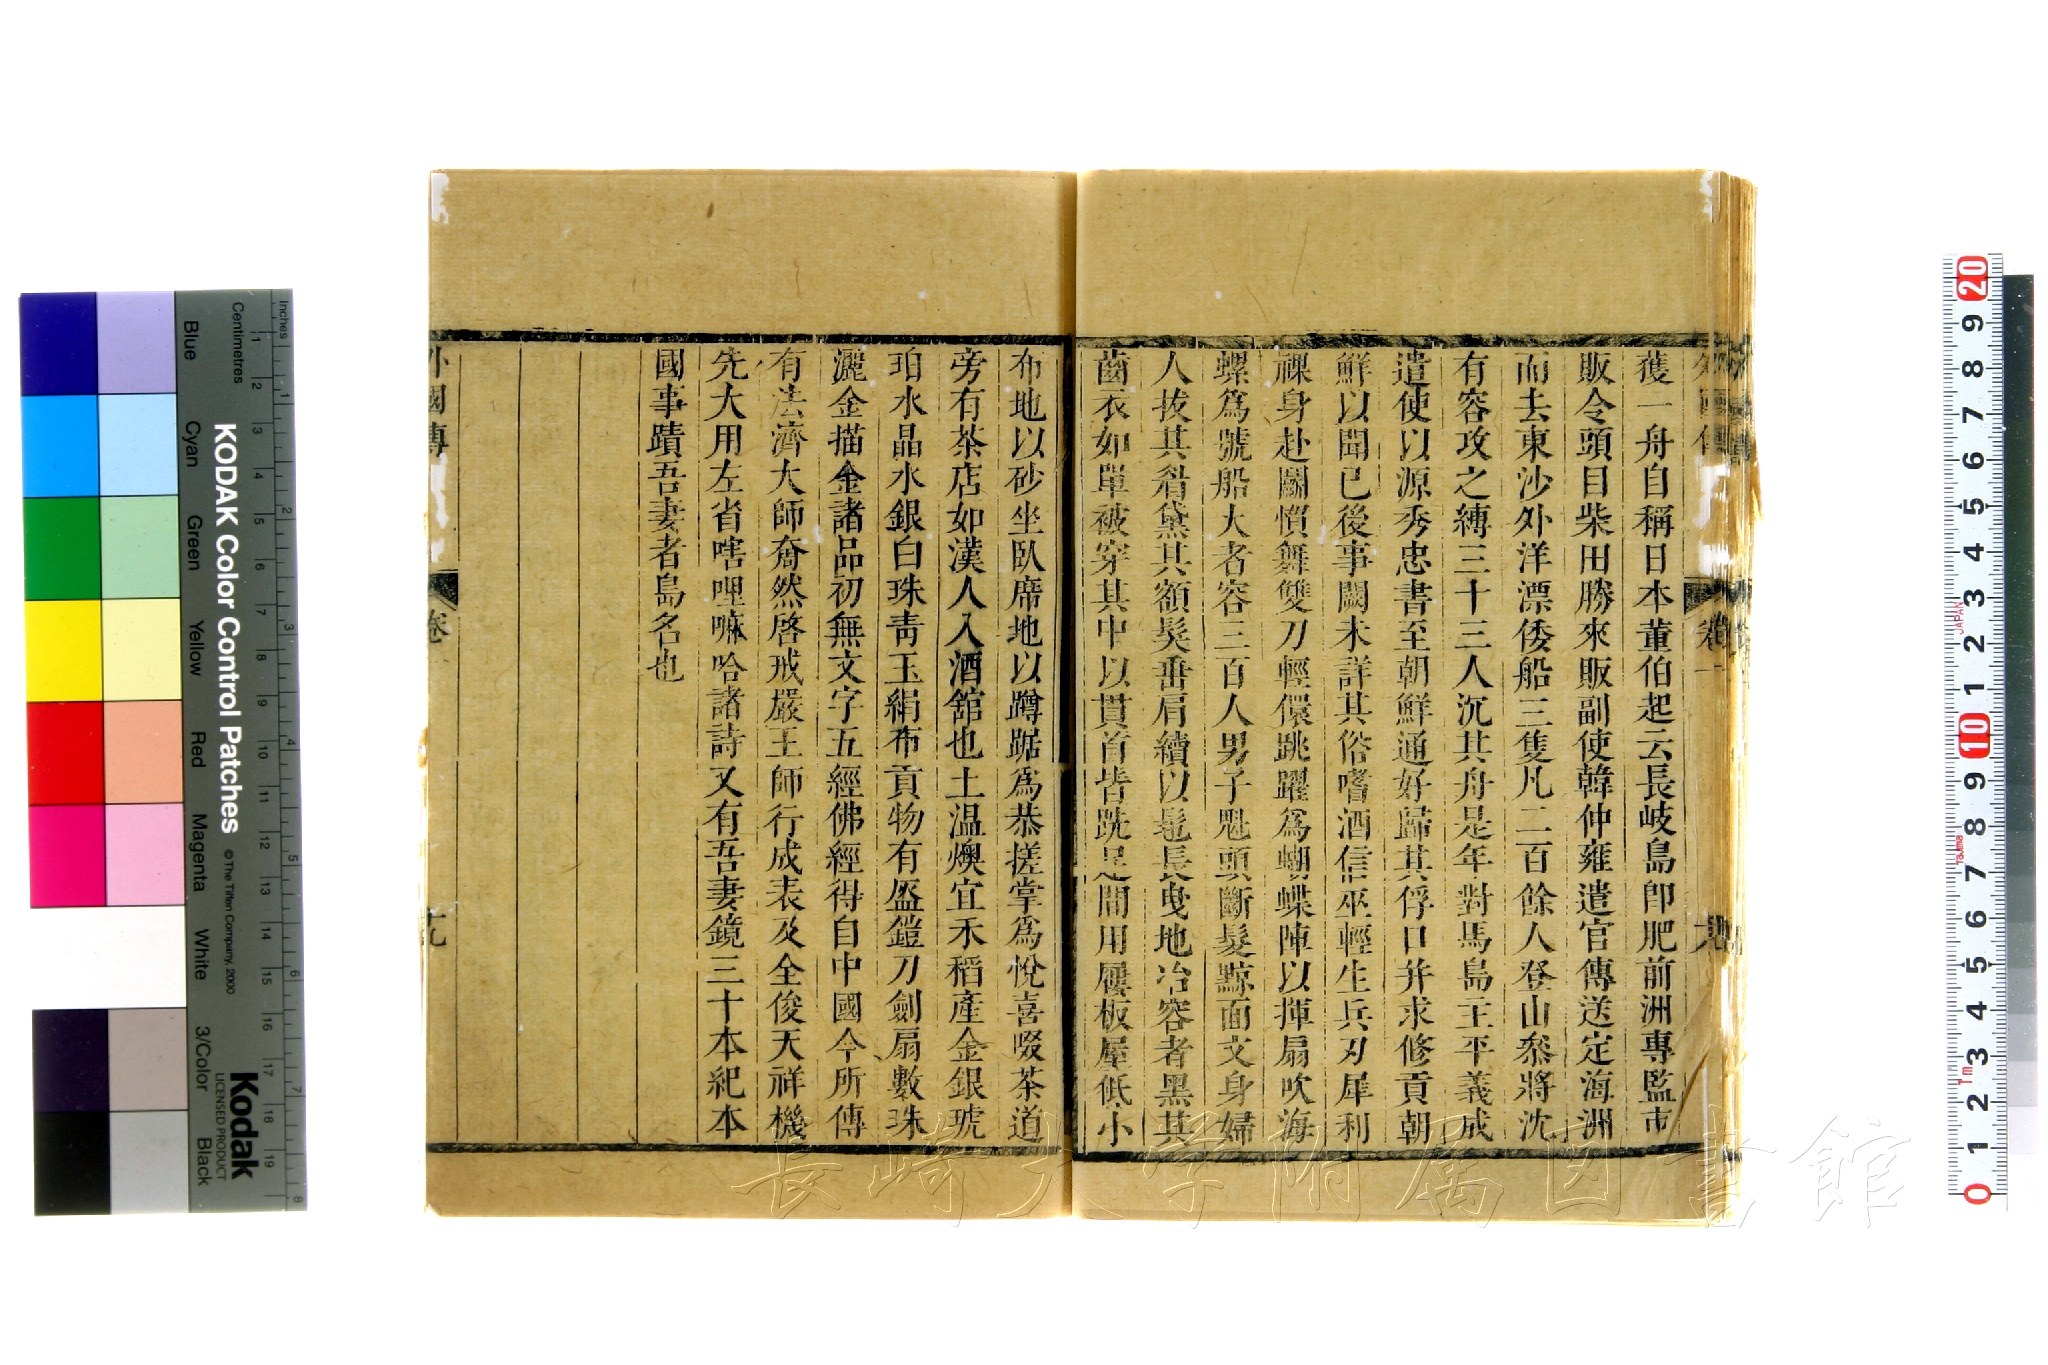 獲一舟自稱日本董伯起云長岐島卽肥前洲專監市
販令頭目柴田勝來販副使韓仲雍遣官傳送定海洲
而去東沙外洋漂倭船三隻凡二百餘人登山叅將沈
有容攻之縛三十三人沉其舟是年對馬島主平義成
遣使以源秀忠書至朝鮮通好歸其俘口幷求修貢朝
鮮以聞已後事闕未詳其俗嗜酒信巫輕生兵刃犀利
裸身赴鬭慣舞雙刀輕儇跳躍爲蝴蝶陣以揮扇吹海
螺爲號船大者容三百人男子魁頭斷髮黥面文身婦
人拔其眉黛其額髮垂肩續以髢長曳地冶容者黑其
齒衣如單被穿其中以貫首皆跣足間用屨板屋低小
布地以砂坐臥席地以蹲踞爲恭搓掌爲悅喜啜茶道
旁有茶店如漢人入酒館也土温燠宜禾稻產金銀琥
珀水晶水銀白珠靑玉絹布貢物有盔鎧刀劍扇數珠
灑金描金諸品初無文字五經佛經得自中國今所傳
有法濟大師奝然啓戒嚴王師行成表及全俊天祥機
先大用左省嗐哩嘛哈諸詩又有吾妻鏡三十本紀本
國事蹟吾妻者島名也
外國傳
卷
十九
外國傳
卷一
KODAK Color Control Patches
© The Tiffen Company, 2000
Kodak
LICENSED PRODUCT
Inches
Centimetres
Blue
Cyan
Green
Yellow
Red
Magenta
White
3/Color
Black
長崎大学附属図書館